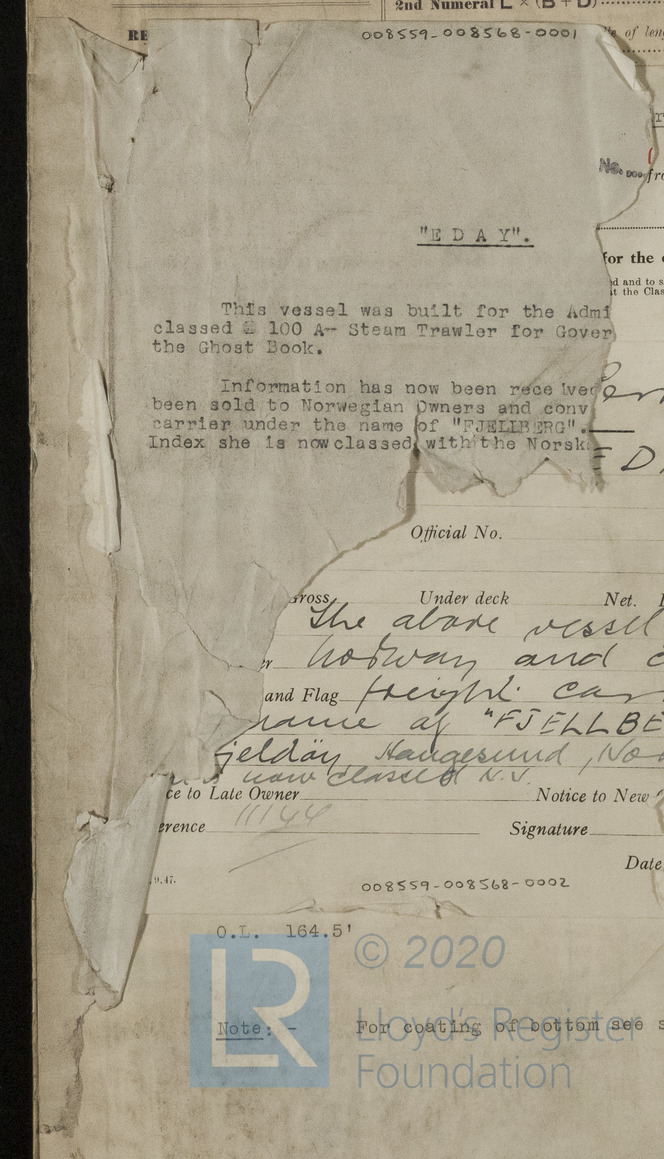 2nd Numeral L × (B + D)
RE
008559-008568-0001
of len
No.
fro
"E D A Y".
for the
d and to s
t the Clas
This vessel was built for the Admi
classed 100 A- Steam Trawler for Gover
the Ghost Book.
Information has now been received
been sold to Norwegian Owners and conv
carrier under the name of "FJELLBERG".
Index she is now classed with the Norsk
Official No.
Gross Under deck Net.
The above vessel
Norway and c
and Flag freight car
name of "FJELLBE
Fjeldöy, Haugesund, No
now classed N.V.
ce to Late Owner Notice to New
erence 1144 Signature
Date
9.47.
008559-008568-0002
O.L. 164.5'
Note: - For coating of bottom see s
LR © 2020
Lloyd's Register
Foundation